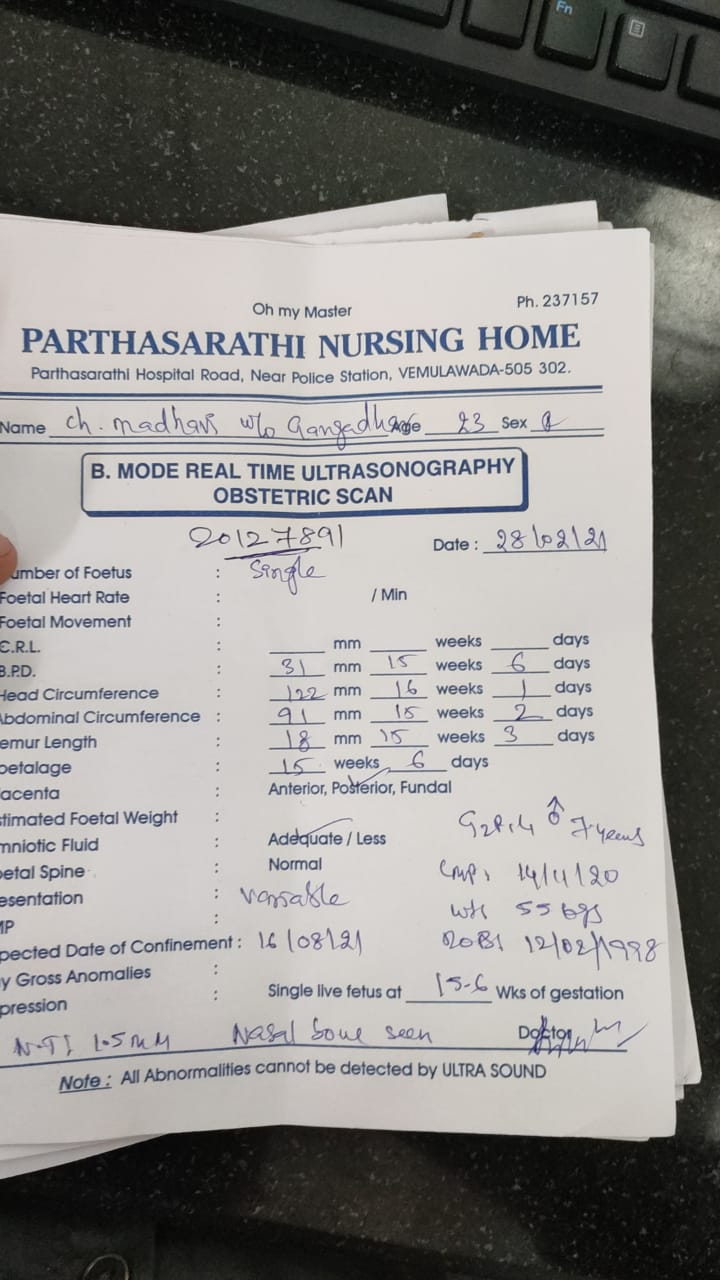 Fn
Oh my Master
Ph. 237157
PARTHASARATHI NURSING HOME
Parthasarathi Hospital Road, Near Police Station, VEMULAWADA-505 302.
Name Ch. Madhavi w/o Gangadhar Age 23 Sex
B. MODE REAL TIME ULTRASONOGRAPHY
OBSTETRIC SCAN
20127891
Date : 28/02/21
umber of Foetus : Single
Foetal Heart Rate : / Min
Foetal Movement :
C.R.L. : mm weeks days
B.P.D. : 31 mm 15 weeks 6 days
Head Circumference : 122 mm 16 weeks 1 days
Abdominal Circumference : 91 mm 15 weeks 2 days
emur Length : 18 mm 15 weeks 3 days
oetalage : 15 weeks 6 days
lacenta : Anterior, Posterior, Fundal
stimated Foetal Weight :
mniotic Fluid : Adequate / Less
♂ 7 years
etal Spine : Normal
LMP: 14/11/20
esentation : Variable
wt: 55 kgs
MP :
pected Date of Confinement : 16/08/21
DOB: 12/02/1998
y Gross Anomalies :
pression : Single live fetus at 15-6 Wks of gestation
N.T: 1.5 MM Nasal bone seen Doctor
Note : All Abnormalities cannot be detected by ULTRA SOUND